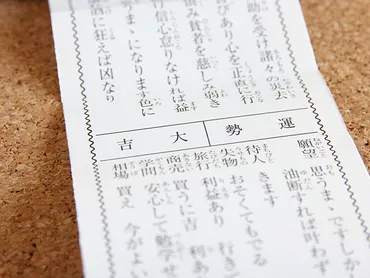 助を受け諸々の災去
びあり心を正直に行
み貧者を慈しみ弱き
行信心怠りなければ益
うまゝになります色に
酒に狂えば凶なり
運勢 大吉
願望 思うまゝですしか
油断すれば叶わず
待人 きます
失物 おそくもでる
旅行 利益あり 行き
商売 買うに吉 利あ
学問 安心して勉学せ
相場 買え 今がよい